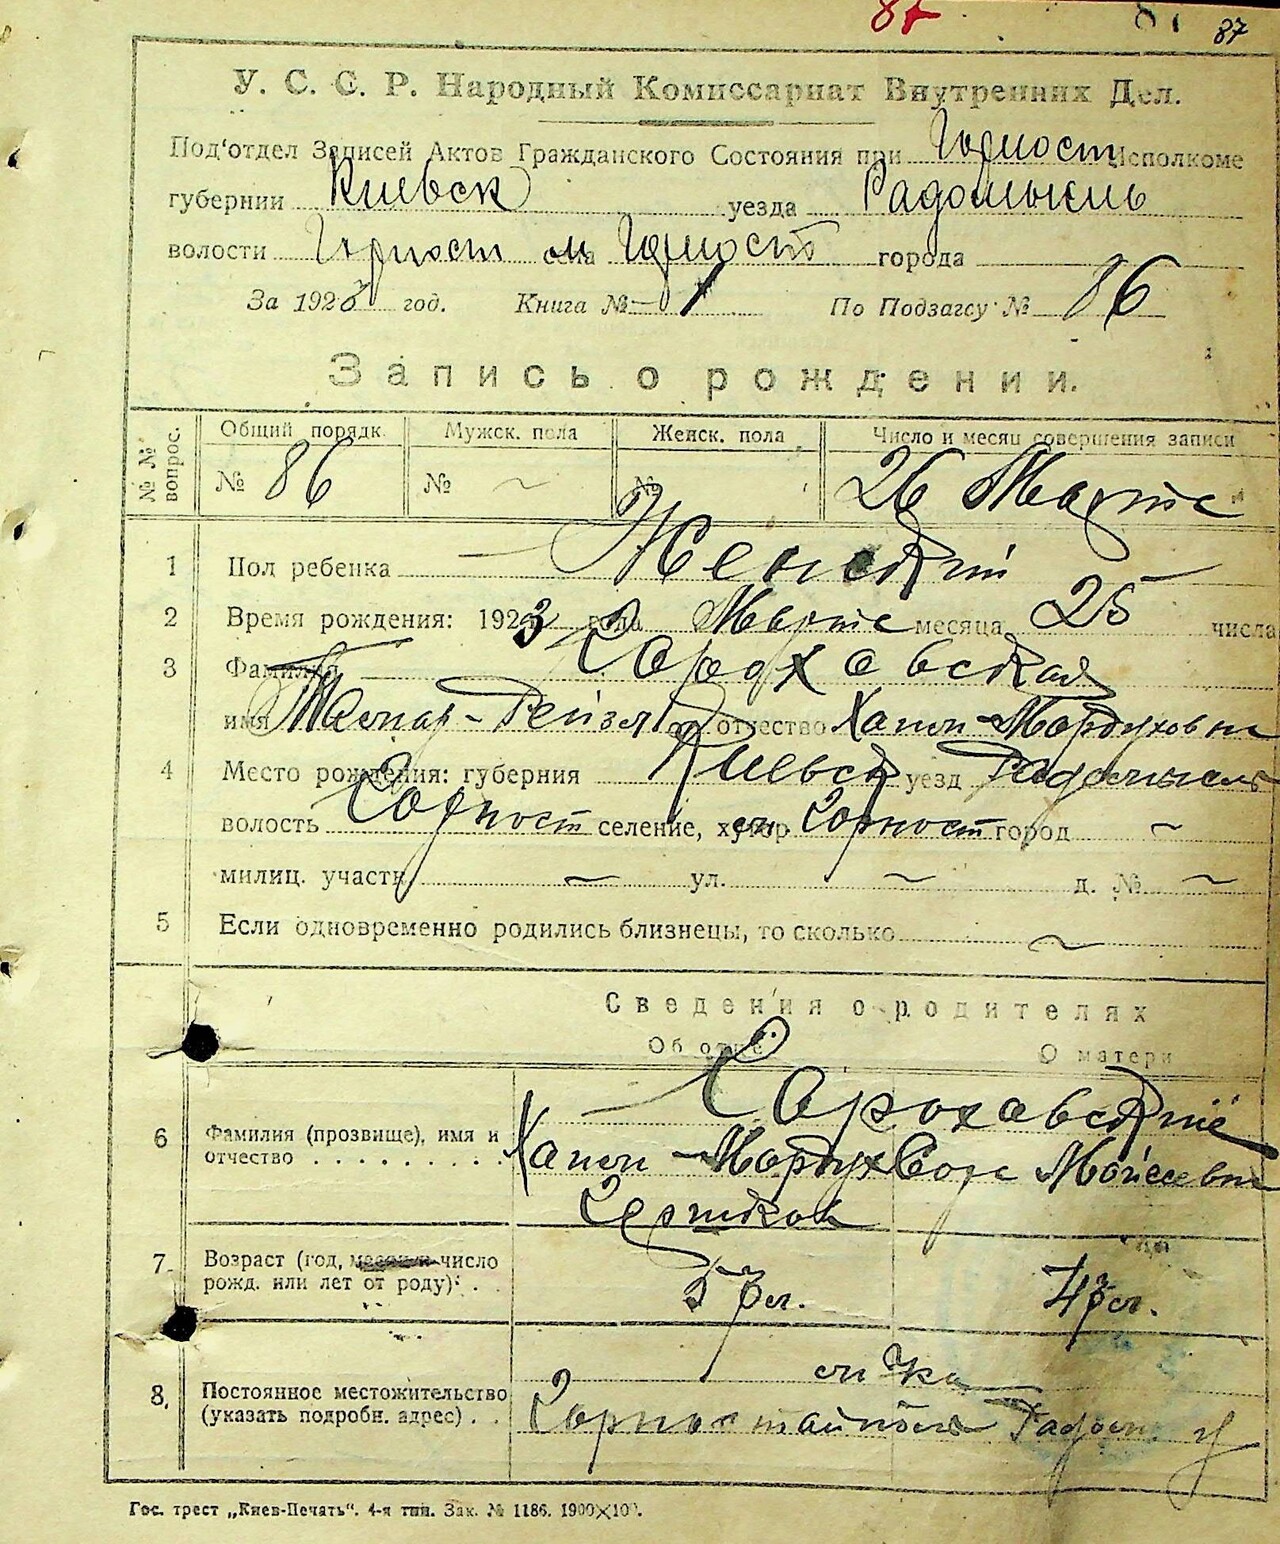 87 87
У. С. С. Р. Народный Комиссариат Внутренних Дел.
Под'отдел Записей Актов Гражданского Состояния при Горност Исполкоме
губернии Киевск уезда Радомысль
волости Горност м села Горност города
За 1923 год. Книга № 1 По Подзагсу № 86
Запись о рождении.
№ № вопрос. Общий порядк. Мужск. пола Женск. пола Число и месяц совершения записи
№ 86 № ~ № 26 Марта
1 Пол ребенка Женский
2 Время рождения: 1923 года Марта месяца 25 числа
3 Фамилия Гороховская
имя отчество Хапин-Мордуховна
4 Место рождения: губерния Киевск уезд Радомысль
волость Горност селение, хутор Горност город ~
милиц. участк. ~ ул. ~ д. № ~
5 Если одновременно родились близнецы, то сколько ~
Сведения о родителях
Об отце О матери
Гороховские
6 Фамилия (прозвище), имя и
отчество . . . . . . . . . Хапин-Мордух Мойсеевна
7 Возраст (год, месяц и число
рожд. или лет от роду): . .
8. Постоянное местожительство
(указать подробн. адрес) . . Горностайполь Радом. у
Гос. трест „Киев-Печать“. 4-я тип. Зак. № 1186. 1900×100.